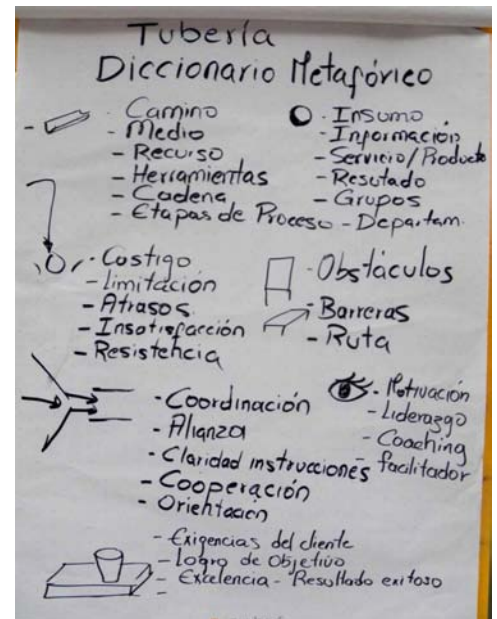 Tubería
Diccionario Metafórico
- Camino
- Medio
- Recurso
- Herramientas
- Cadena
- Etapas de Proceso
- Insumo
- Información
- Servicio/Producto
- Resutado
- Grupos
- Departam.
- Castigo
- limitación
- Atrasos.
- Insatisfacción
- Resistencia
- Obstáculos
- Barreras
- Ruta
- Coordinación
- Alianza
- Claridad instrucciones
- Cooperación
- Orientación
- Motivación
- Liderazgo
- Coaching
- facilitador
- Exigencias del cliente
- Logro de Objetivo
- Excelencia - Resultado exitoso